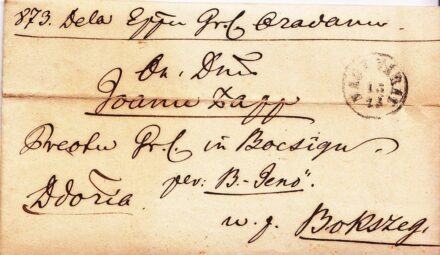 873. Dela Eppu Gr. C. Oradanu.
On. Dnu
Joanu Papp
NAGY VÁRAD
15
11
Preotu Gr. C. in Bocsigu.
per: B.-Jenö".
Ddoria.
u. p. Bokszeg.